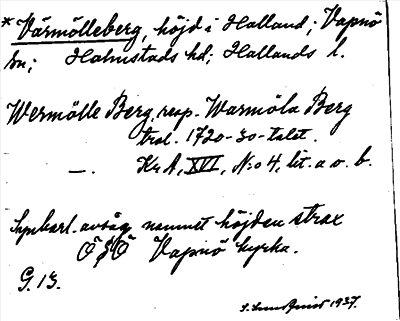 * Värmölleberg, höjd i Halland; Vapnö
sn; Halmstads hd; Hallands l.
Wermölle Berg, resp. Warmöla Berg
trol. 1720-30-talet.
—. KrA, XVI, N:o 4, lit. a o. b.
Synbarl. avsåg namnet höjden strax
ÖSÖ Vapnö kyrka.
G. 13.
1937.